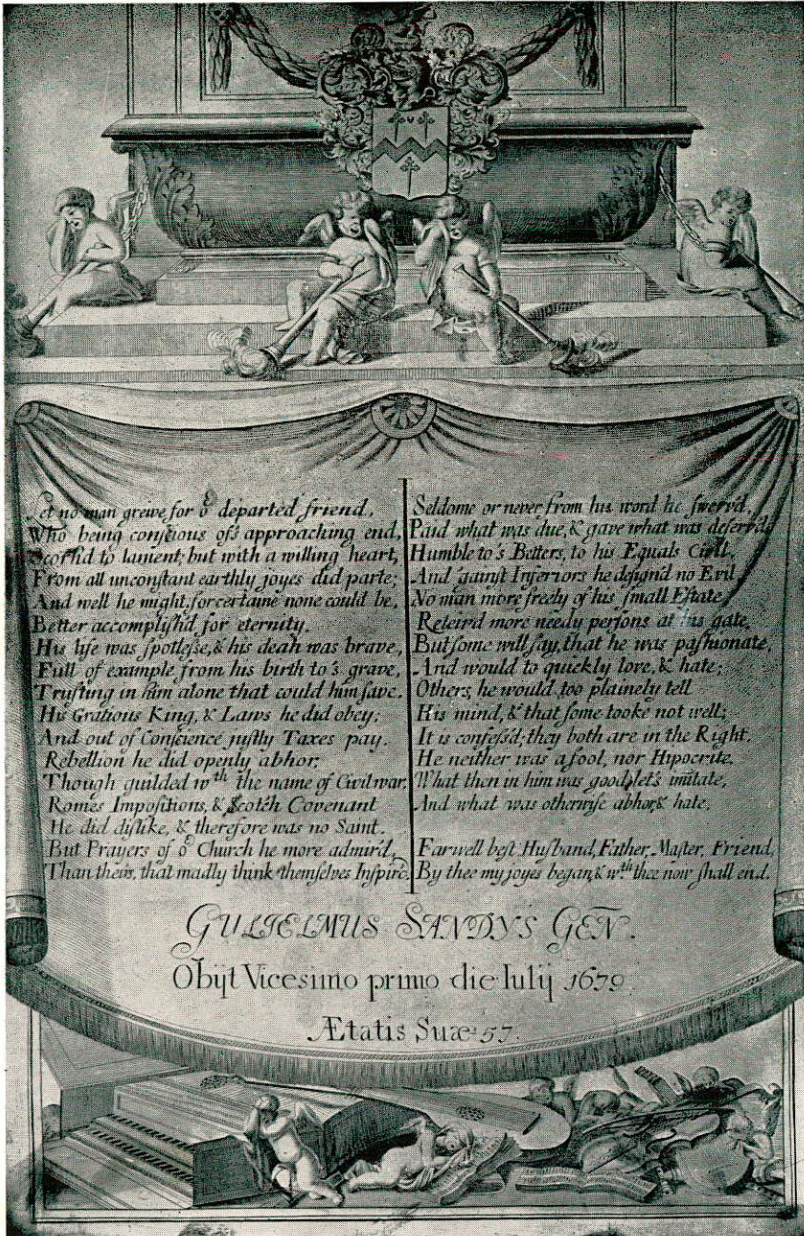 Let no man greive for oͬ departed friend,
Who being conſcious of's approaching end,
Scorn'd to lament; but with a willing heart,
From all unconſtant earthly joyes did parte;
And well he might, for certaine none could be,
Better accompliſh'd for eternity.
His life was ſpotleſſe, & his death was brave,
Full of example from his birth to's grave,
Truſting in him alone that could him ſave.
His Gratious King, & Laws he did obey;
And out of Conſcience juſtly Taxes pay.
Rebellion he did openly abhor;
Though guilded wᵗʰ the name of Civil war,
Romes Impoſitions, & Scotch Covenant
He did diſlike, & therefore was no Saint.
But Prayers of oͬ Church he more admir'd,
Than theirs, that madly think themſelves Inſpir'd.
Seldome or never from his word he ſwerv'd,
Paid what was due, & gave what was deſerv'd
Humble to's Betters, to his Equals Civil,
And 'gainſt Inferiors he deſign'd no Evil,
No man more freely of his ſmall Eſtate,
Releiv'd more needy perſons at his gate,
But ſome will ſay, that he was paſhionate,
And would to quickly love, & hate;
Others, he would too plainely tell
His mind, & that ſome tooke not well;
It is confeſs'd; they both are in the Right,
He neither was a fool, nor Hipocrite.
What then in him was good, let's imitate,
And what was otherwiſe abhor, & hate,
Farwell beſt Huſband, Father, Maſter, Friend,
By thee my joyes began, & wᵗʰ thee now ſhall end.
GULIELMUS SANDYS GEN.
Obijt Vicesimo primo die Iulij 1679
Ætatis Suæ 57.